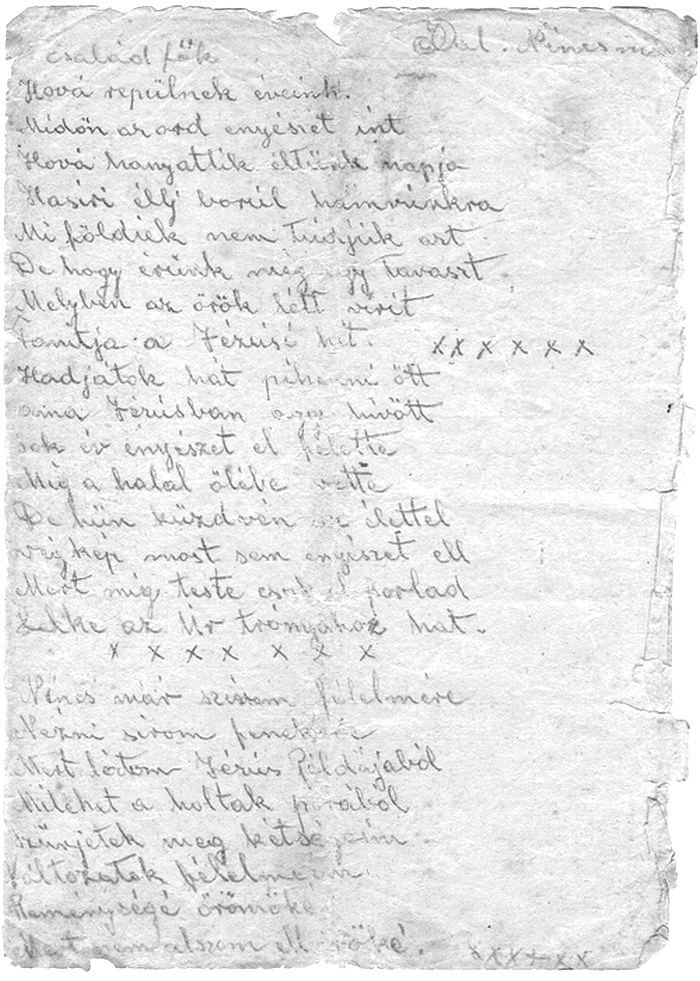 Dal. Nincs m
család fők
Hová repülnek éveink.
Midőn az ord enyészet int
Hová hanyatlik éltünk napja
Ha síri éllj borúl hamvunkra
Mi földiek nem tudjuk azt
De hogy érünk még egy tavaszt
Melyben az örök létt virít
Tanitja a Jézusi hit. xx x x x x
Hadjátok hát pihenni őtt
ama Jézusban hívőtt
sok év enyészet el felette
Mig a halál ölébe vette
De hűn küzdvén az élettel
végkép most sem enyészet ell
Mert míg teste csak el porlad
Lelke az Úr trónyához hat.
x x x x x x x
Nincs már szivem félelmére
Nézni sirom fenekére
Mert látom Jézus Példájából
Mi lehet a holtak porából
szűnjetek meg kétségeim
változatok félelmeim
Reménységé örömöké
Mert nem alszom ell öröké. x x x x x x